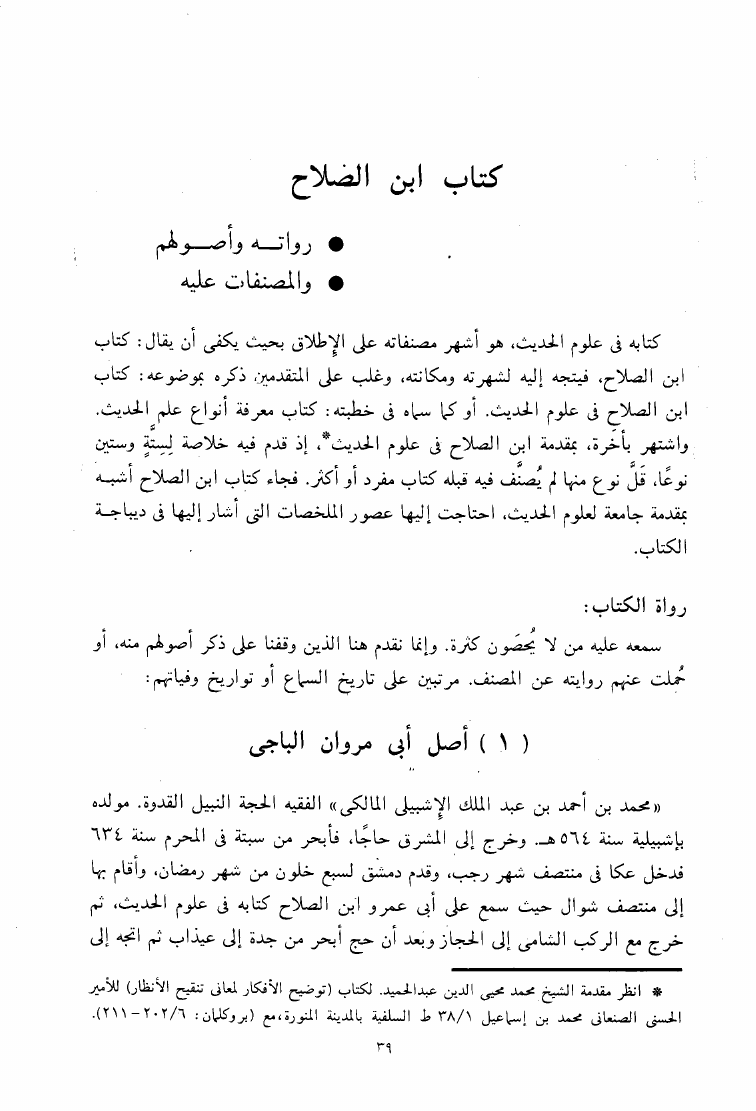 كتاب ابن الصلاح
● رواتــه وأصــولهم
● والمصنفات عليه
كتابه في علوم الحديث، هو أشهر مصنفاته على الإطلاق بحيث يكفى أن يقال: كتاب
ابن الصلاح، فيتجه إليه لشهرته ومكانته، وغلب على المتقدمين ذكره بموضوعه: كتاب
ابن الصلاح في علوم الحديث. أو كما سماه في خطبته: كتاب معرفة أنواع علم الحديث.
واشتهر بأخَرة، بمقدمة ابن الصلاح في علوم الحديث*، إذ قدم فيه خلاصة لِستَّةٍ وستين
نوعًا، قَلَّ نوع منها لم يُصنَّف فيه قبله كتاب مفرد أو أكثر. فجاء كتاب ابن الصلاح أشبـه
بمقدمة جامعة لعلوم الحديث، احتاجت إليها عصور الملخصات التى أشار إليها في ديباجـة
الكتاب.
رواة الكتاب:
سمعه عليه من لا يُحصَون كثرة. وإنما نقدم هنا الذين وقفنا على ذكر أصولهم منه، أو
حُملت عنهم روايته عن المصنف. مرتبين على تاريخ السماع أو تواريخ وفياتهم:
( ١ ) أصل أبى مروان الباجى
«محمد بن أحمد بن عبد الملك الإشبيلى المالكى» الفقيه الحجة النبيل القدوة. مولده
بإشبيلية سنة ٥٦٤ هـ. وخرج إلى المشرق حاجًا، فأبحر من سبتة في المحرم سنة ٦٣٤
فدخل عكا في منتصف شهر رجب، وقدم دمشق لسبع خلون من شهر رمضان، وأقام بها
إلى منتصف شوال حيث سمع على أبى عمرو ابن الصلاح كتابه في علوم الحديث، ثم
خرج مع الركب الشامى إلى الحجاز وبعد أن حج أبحر من جدة إلى عيذاب ثم اتجه إلى
* انظر مقدمة الشيخ محمد محيى الدين عبدالحميد. لكتاب (توضيح الأفكار لمعانى تنقيح الأنظار) للأمير
الحسنى الصنعانى محمد بن إسماعيل ٣٨/١ ط السلفية بالمدينة المنورة، مع (بروكلمان: ٢٠٢/٦-٢١١).
٣٩